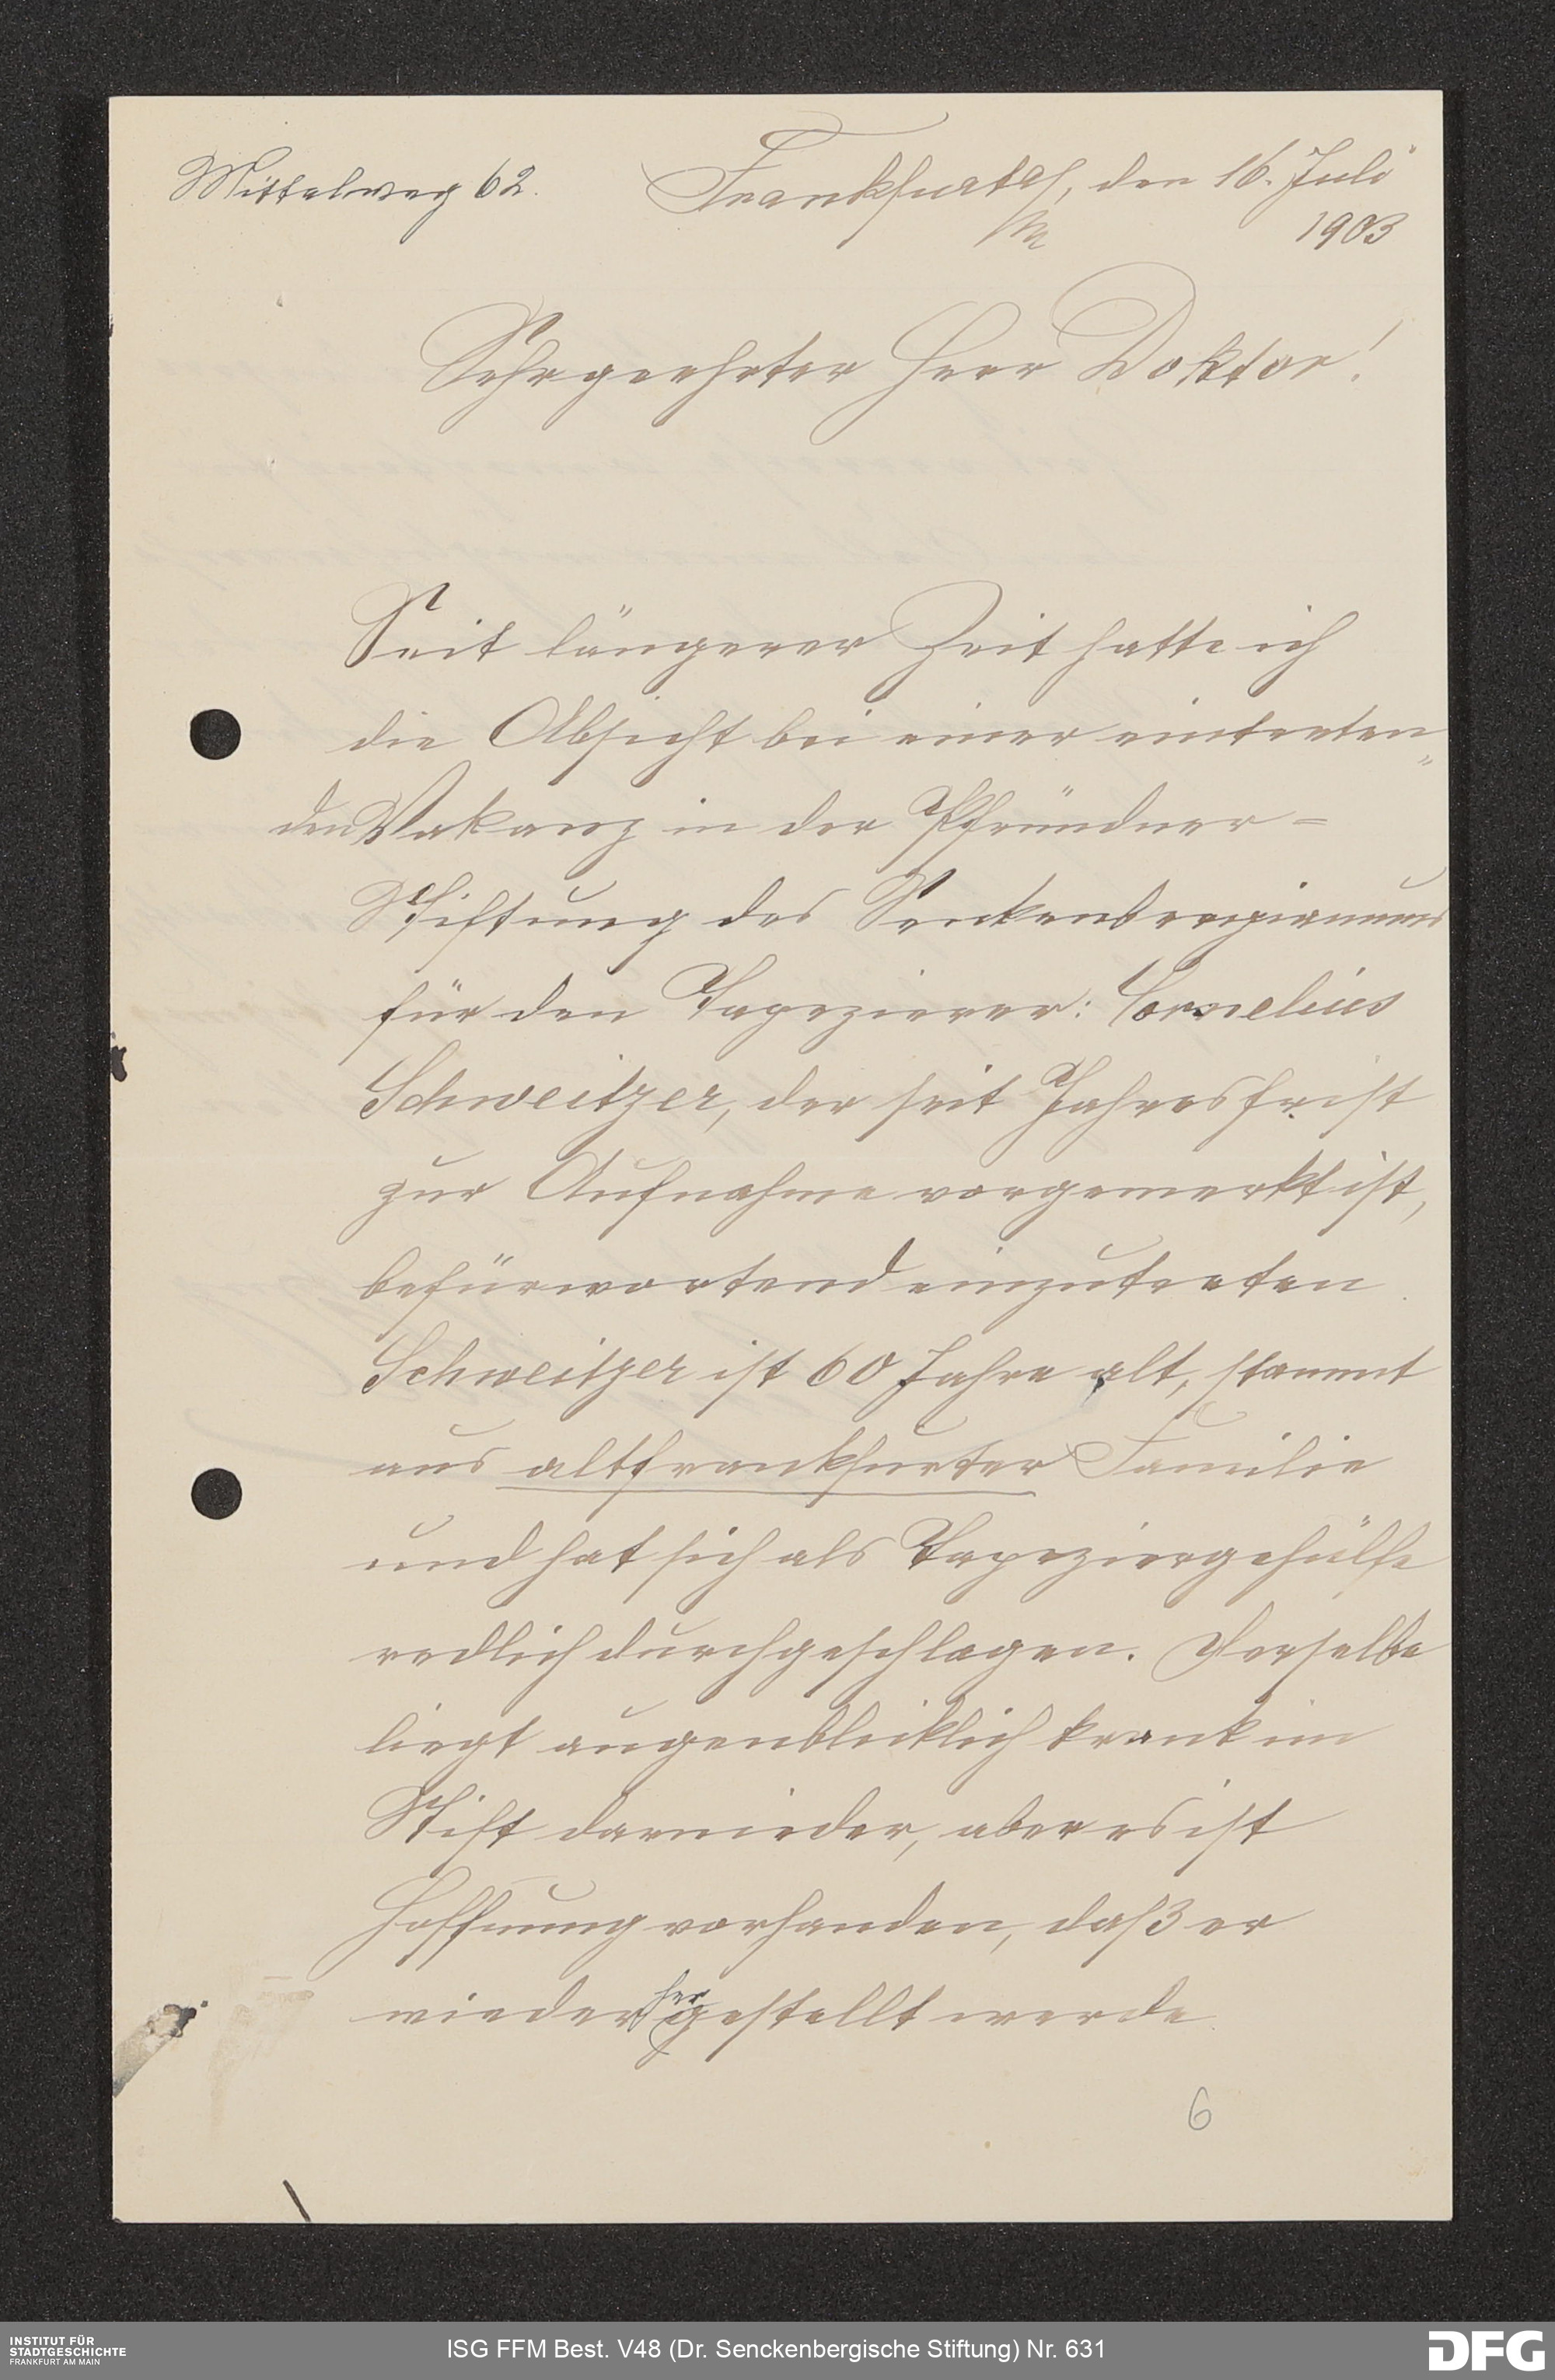 Mittelweg 62.
Frankfurt a/M, den 16. Juli
1903
Sehrgeehrter Herr Doktor!
Seit längerer Zeit hatte ich
die Absicht bei einer eintreten„
den Vakanz in der Pfründner-
Stiftung des Senkenbergianums
für den Tapezierer: Cornelius
Schweitzer, der seit Jahresfrist
zur Aufnahme vorgemerkt ist,
befürwortend einzutreten.
Schweitzer ist 60 Jahre alt, stammt
aus altfrankfurter Familie
und hat sich als Tapeziergehülfe
redlich durchgeschlagen. Derselbe
liegt augenblicklich krank im
Stift darnieder, aber es ist
Hoffnung vorhanden, daß er
wiederhergestellt werde.
6
INSTITUT FÜR
STADTGESCHICHTE
FRANKFURT AM MAIN
ISG FFM Best. V48 (Dr. Senckenbergische Stiftung) Nr. 631
DFG